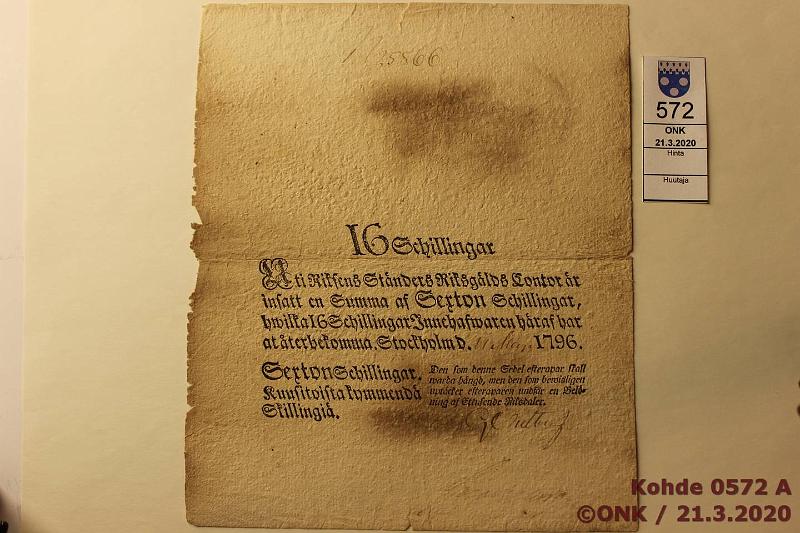 25866
16 Schillingar
Uti Riksens Ständers Riksgälds Contor är
insatt en Summa af Sexton Schillingar,
hwilka 16 Schillingar Innehafwaren häraf har
at återbekomma. Stockholm d. 1796.
Sexton Schillingar.
Kuusitoistakymmendä
Skillingiä.
Den som denne Sedel efterapar skall
warda hängd, men den som bewisligen
uptäcker efteraparen undfår en Belö-
ning af Ettusende Riksdaler.
572
ONK
21.3.2020
Hinta
Huutaja
Kohde 0572 A
©ONK / 21.3.2020